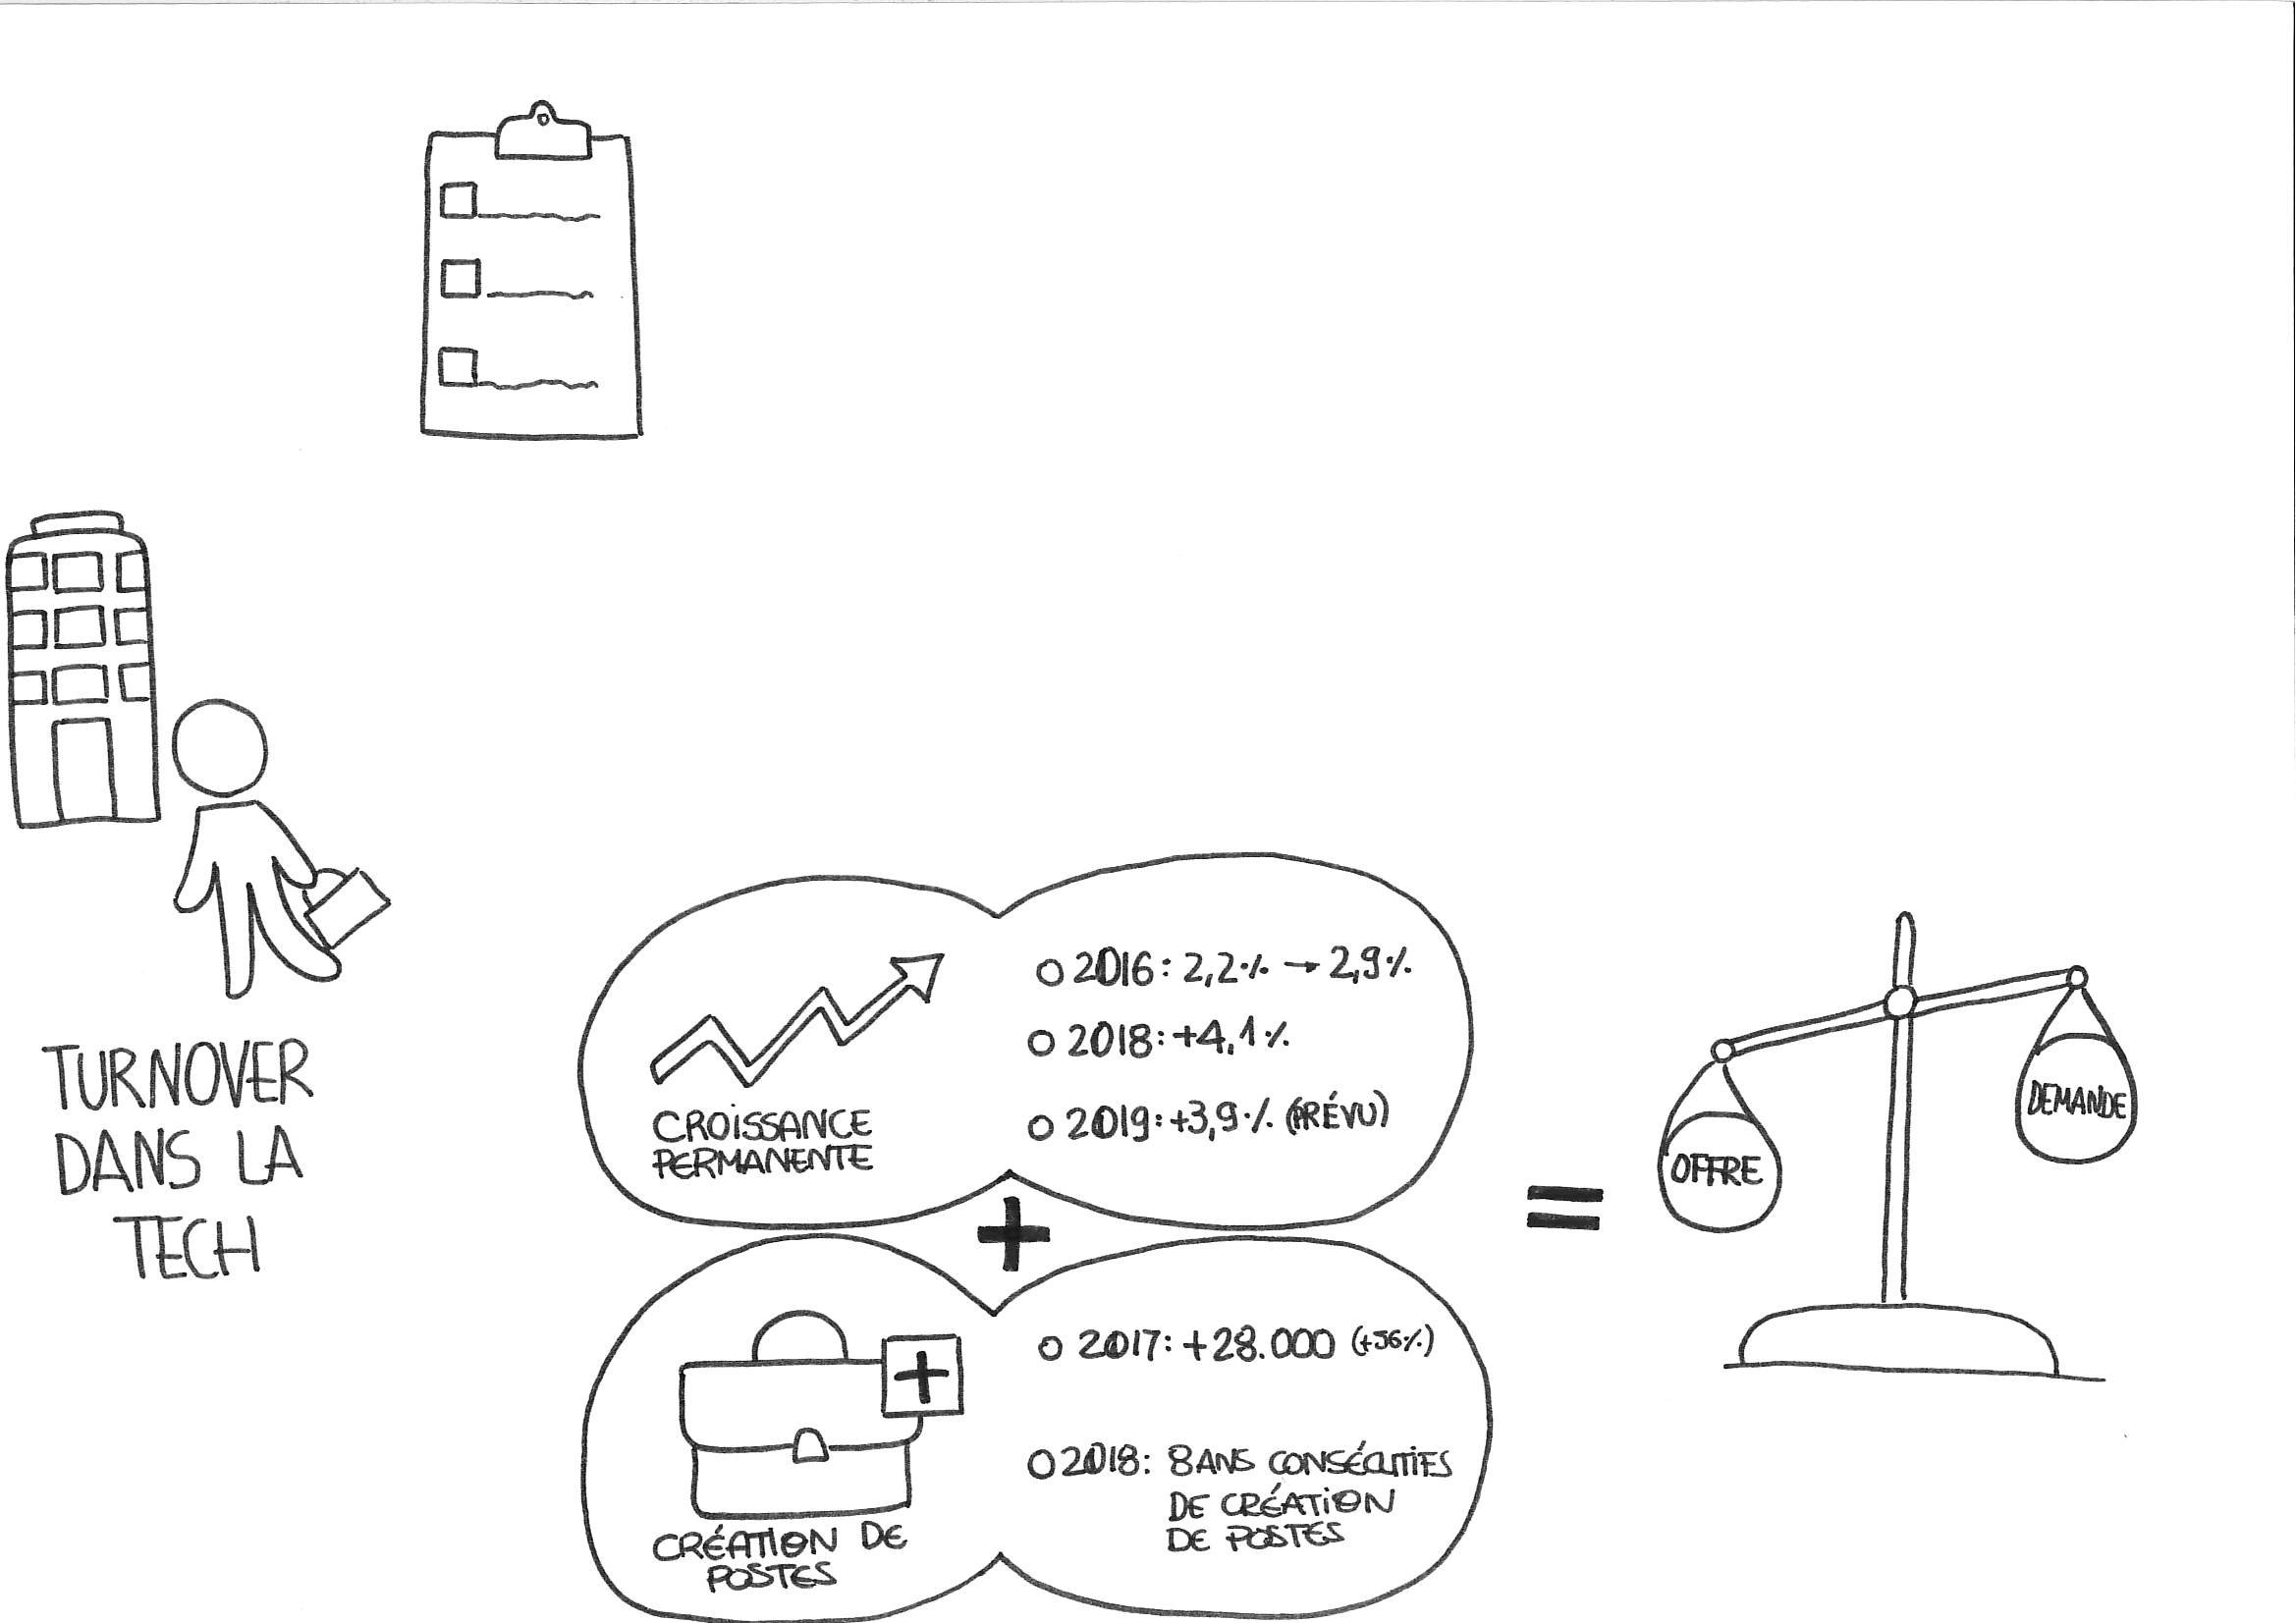 TURNOVER
DANS LA
TECH
CROISSANCE
PERMANENTE
2016: 2,2% → 2,9%
2018: +4,1%
2019: +3,9% (PRÉVU)
+
CRÉATION DE
POSTES
2017: +28.000 (+36%)
2018: 8 ANS CONSÉCUTIFS
DE CRÉATION
DE POSTES
=
OFFRE
DEMANDE